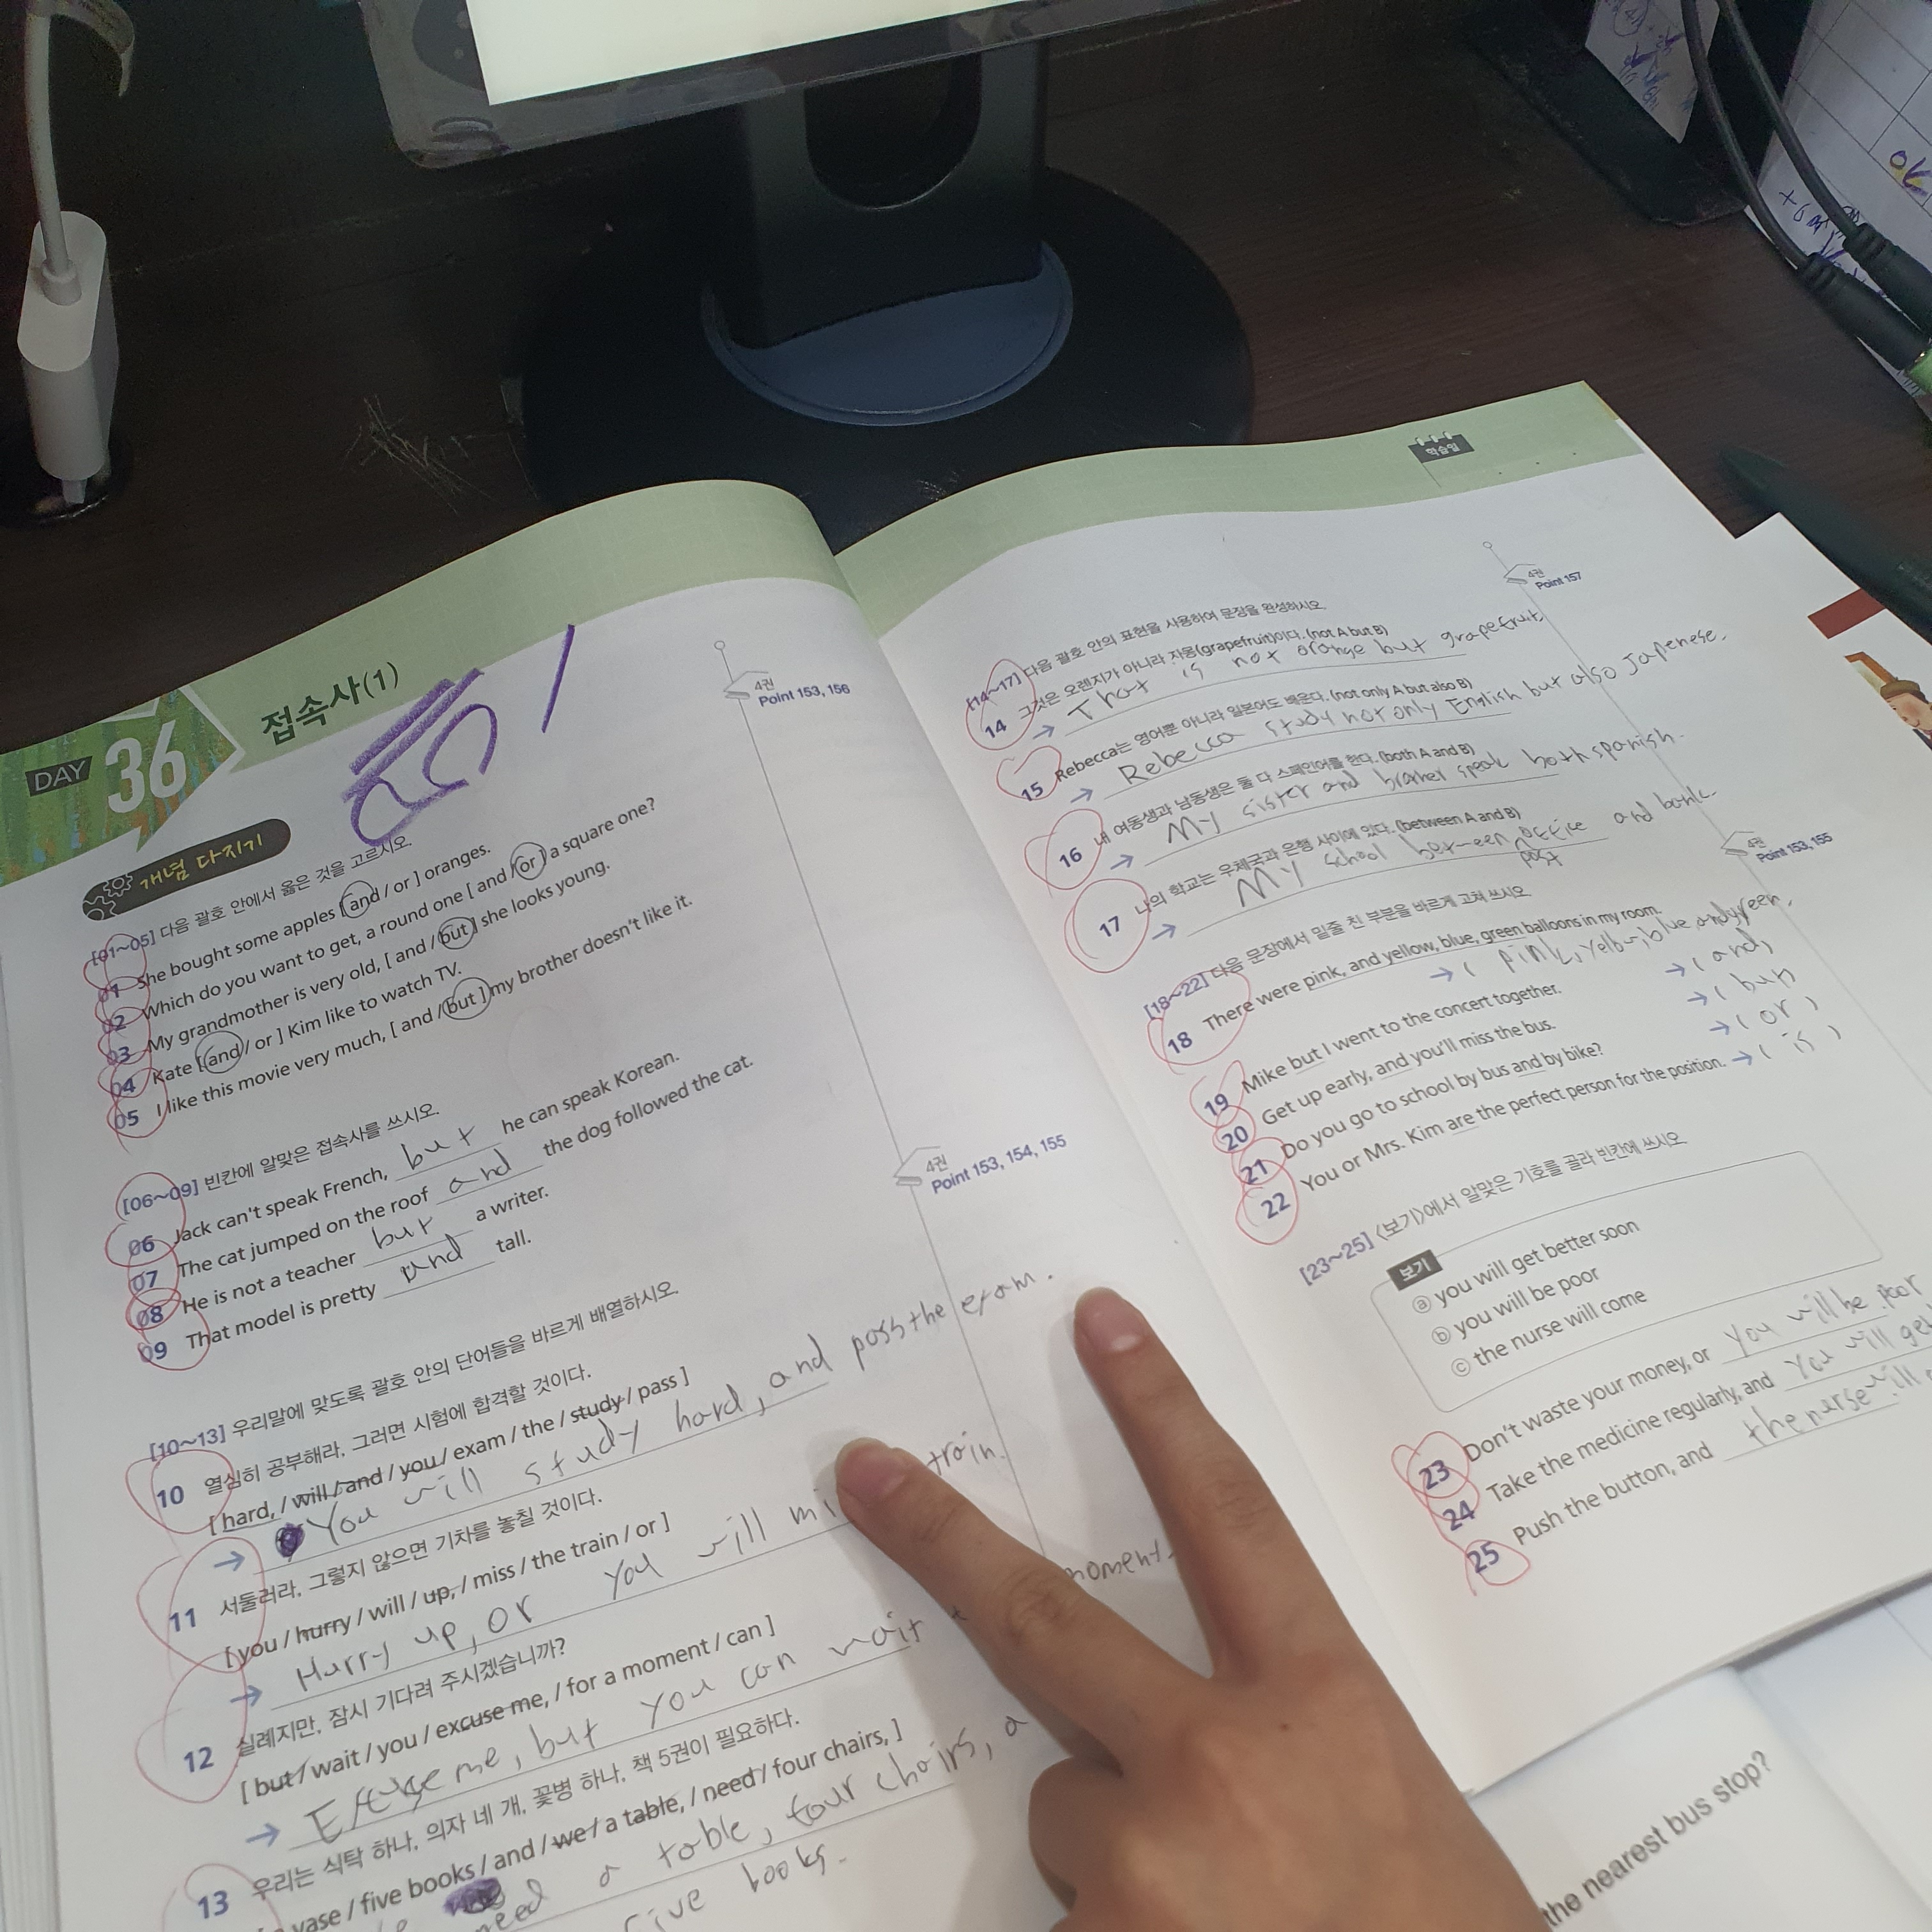 DAY 36
접속사(1)
4권
Point 153, 156
개념 다지기
[01~05] 다음 괄호 안에서 옳은 것을 고르시오.
01 She bought some apples [ and / or ] oranges.
02 Which do you want to get, a round one [ and / or ] a square one?
03 My grandmother is very old, [ and / but ] she looks young.
04 Kate [ and / or ] Kim like to watch TV.
05 I like this movie very much, [ and / but ] my brother doesn't like it.
[06~09] 빈칸에 알맞은 접속사를 쓰시오.
06 Jack can't speak French, but he can speak Korean.
07 The cat jumped on the roof and the dog followed the cat.
08 He is not a teacher but a writer.
09 That model is pretty and tall.
4권
Point 153, 154, 155
[10~13] 우리말에 맞도록 괄호 안의 단어들을 바르게 배열하시오.
10 열심히 공부해라, 그러면 시험에 합격할 것이다.
[ hard, / will / and / you / exam / the / study / pass ]
→ You will study hard, and pass the exam.
11 서둘러라, 그렇지 않으면 기차를 놓칠 것이다.
[ you / hurry / will / up, / miss / the train / or ]
→ Hurry up, or you will mi train.
12 실례지만, 잠시 기다려 주시겠습니까?
[ but / wait / you / excuse me, / for a moment / can ]
→ me, but you can wait moment.
13 우리는 식탁 하나, 의자 네 개, 꽃병 하나, 책 5권이 필요하다.
vase / five books / and / we / a table, / need / four chairs, ]
need a table, four chairs, a
five books.
학습일
4권
Point 157
[14~17] 다음 괄호 안의 표현을 사용하여 문장을 완성하시오.
14 그것은 오렌지가 아니라 자몽(grapefruit)이다. (not A but B)
→ That is not orange but grapefruit.
15 Rebecca는 영어뿐 아니라 일본어도 배운다. (not only A but also B)
→ Rebecca study not only English but also Japenese.
16 내 여동생과 남동생은 둘 다 스페인어를 한다. (both A and B)
→ My sister and speak both spanish.
17 나의 학교는 우체국과 은행 사이에 있다. (between A and B)
→ My school office and bank.
post
4권
Point 153, 155
[18~22] 다음 문장에서 밑줄 친 부분을 바르게 고쳐 쓰시오.
18 There were pink, and yellow, blue, green balloons in my room.
→ ( pink, blue,
19 Mike but I went to the concert together. → ( and )
20 Get up early, and you'll miss the bus. → (
21 Do you go to school by bus and by bike? → ( or )
22 You or Mrs. Kim are the perfect person for the position. → ( is )
[23~25] 〈보기〉에서 알맞은 기호를 골라 빈칸에 쓰시오.
보기
ⓐ you will get better soon
ⓑ you will be poor
ⓒ the nurse will come
23 Don't waste your money, or you will be poor
24 Take the medicine regularly, and you will get
25 Push the button, and the nurse will
the nearest bus stop?
OK